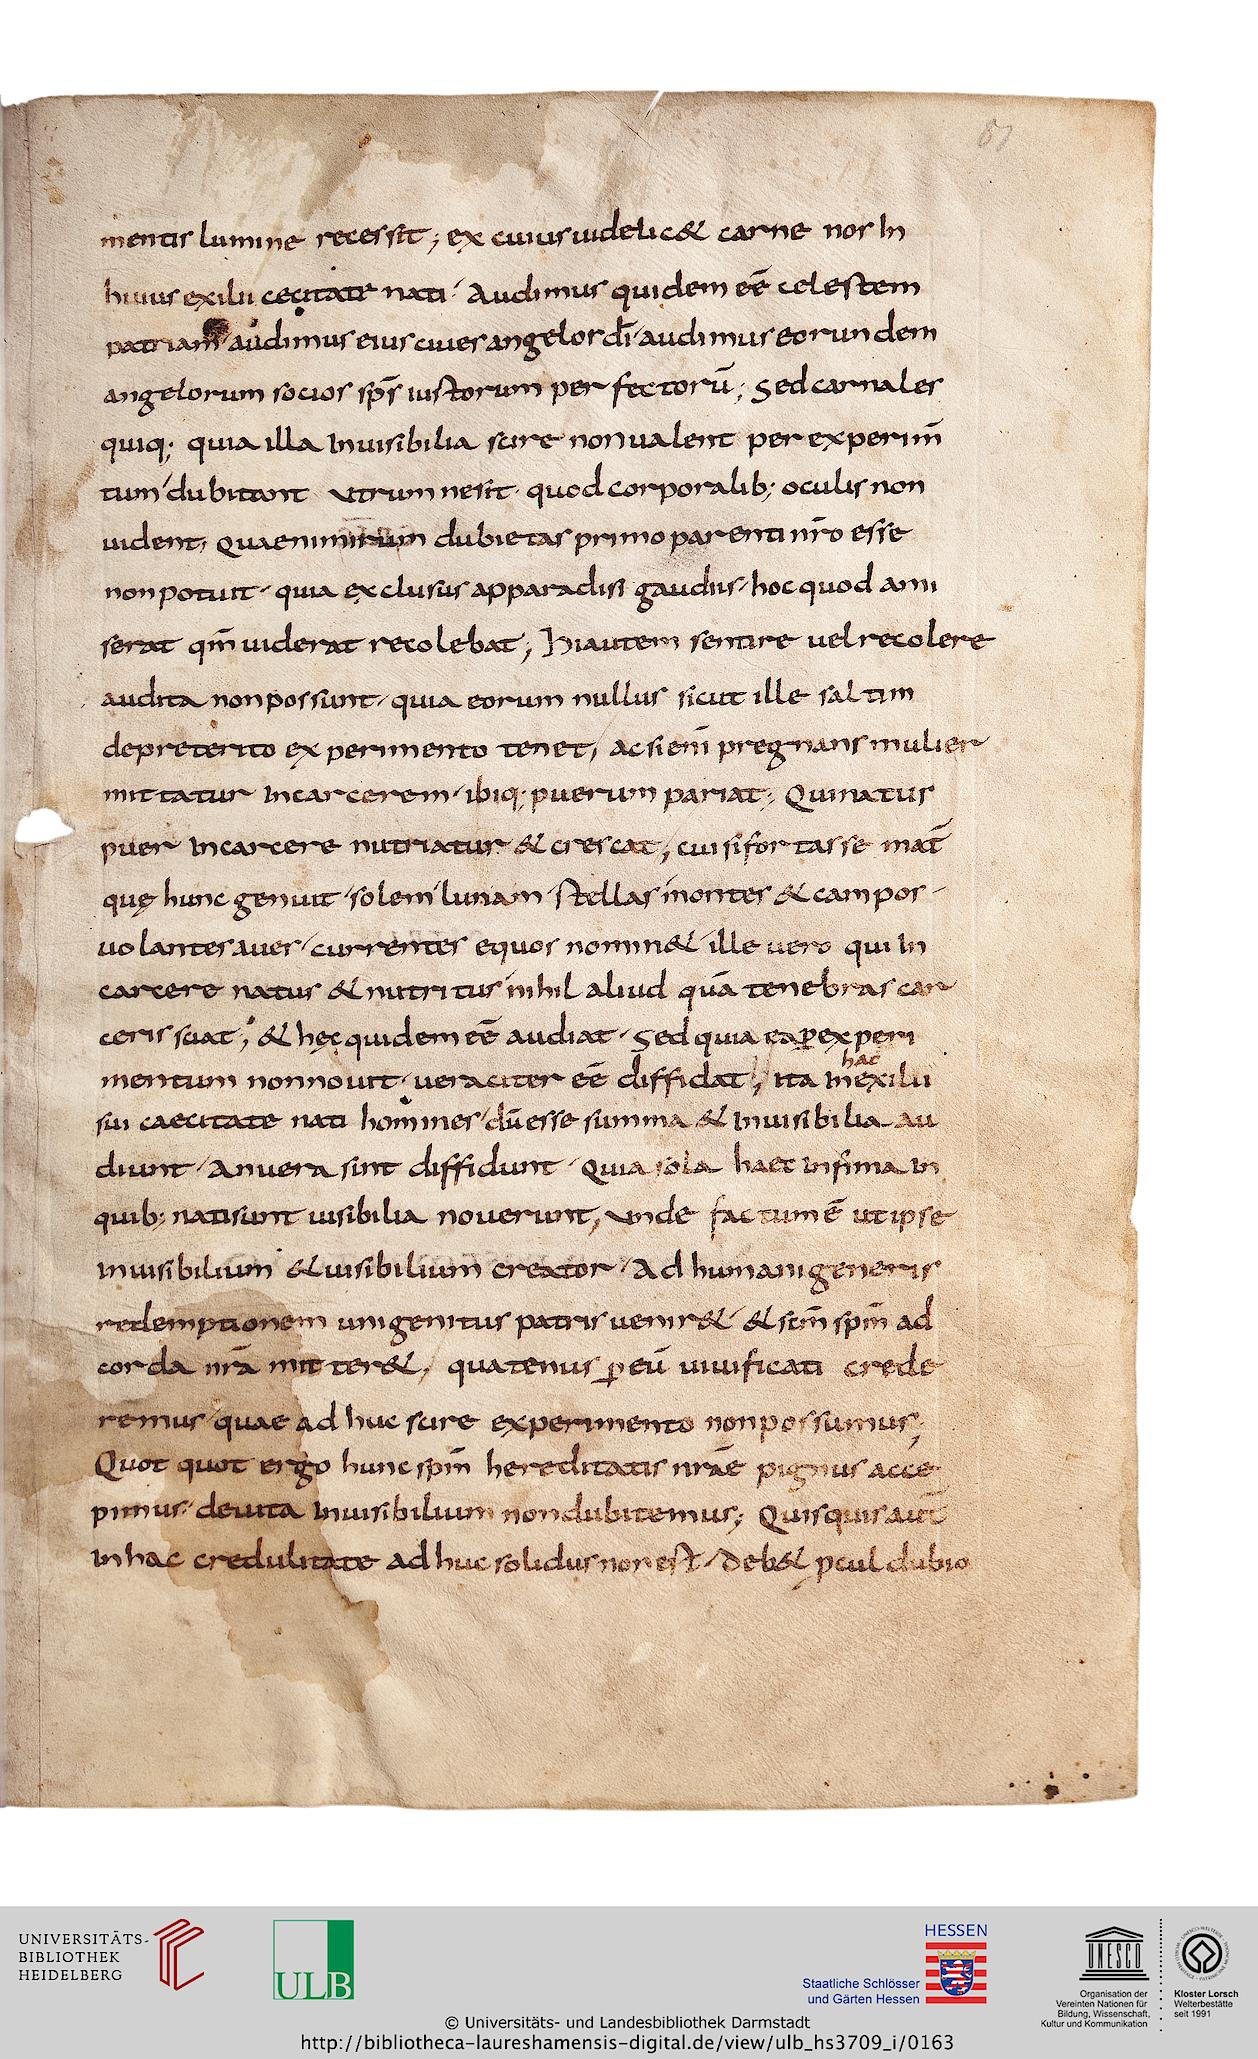 81
mentis lumine recessit; ex cuius uidelic& carne nos In
huius exilii cecitate nati. Audimus quidem eē celestem
patriam audimus eius ciues angelos dī audimus eorundem
angelorum socios sp̄s iustorum perfectorū; Sed carnales
quiq; quia illa Inuisibilia scire non ualent per experim̄
tum dubitant utrumnesit quod corporalib; oculis non
uident; Quae nimirum dubietas primo parenti nr̄o esse
non potuit quia exclusus apparadisi gaudiis hoc quod ami
serat qm̄ uiderat recolebat; Hi autem sentire uel recolere
audita non possunt quia eorum nullus sicut ille saltim
de preterito experimento tenet; ac si enī pregnans mulier
mittatur Incarcerem ibiq; puerum pariat; Qui natus
puer Incarcere nutriatur & crescat; cui si fortasse mat̄
quę hunc genuit solem lunam stellas montes & campos
uolantes aues currentes equos nomin& ille uero qui In
carcere natus & nutritus nihil aliud quā tenebras car
ceris sciat; & hęc quidem eē audiat Sed quia ea ꝑ experi
mentum non nouit ueraciter eē diffidat; Ita In hac exilii
sui caecitate nati homines dū esse summa & Inuisibilia au
diunt An uera sint diffidunt Quia sola haec Infima In
quib; nati sunt uisibilia nouerunt; unde factum ē ut ipse
Inuisibilium & uisibilium creator Ad humani generis
redemptionem unigenitus patris uenir& & scm̄ spm̄ ad
corda nrā mitter&; quatenus ꝑ eū uiuificati crede
remus quae adhuc scire experimento non possumus;
Quot quot ergo hunc spm̄ hereditatis nrāe pignus acce
pimus de uita Inuisibilium non dubitemus; Quisquis aut̄
In hac credulitate adhuc solidus non est Deb& pcul dubio
UNIVERSITÄTS-
BIBLIOTHEK
HEIDELBERG
ULB
HESSEN
Staatliche Schlösser
und Gärten Hessen
UNESCO
Organisation der
Vereinten Nationen für
Bildung, Wissenschaft,
Kultur und Kommunikation
Kloster Lorsch
Welterbestätte
seit 1991
© Universitäts- und Landesbibliothek Darmstadt
http://bibliotheca-laureshamensis-digital.de/view/ulb_hs3709_i/0163